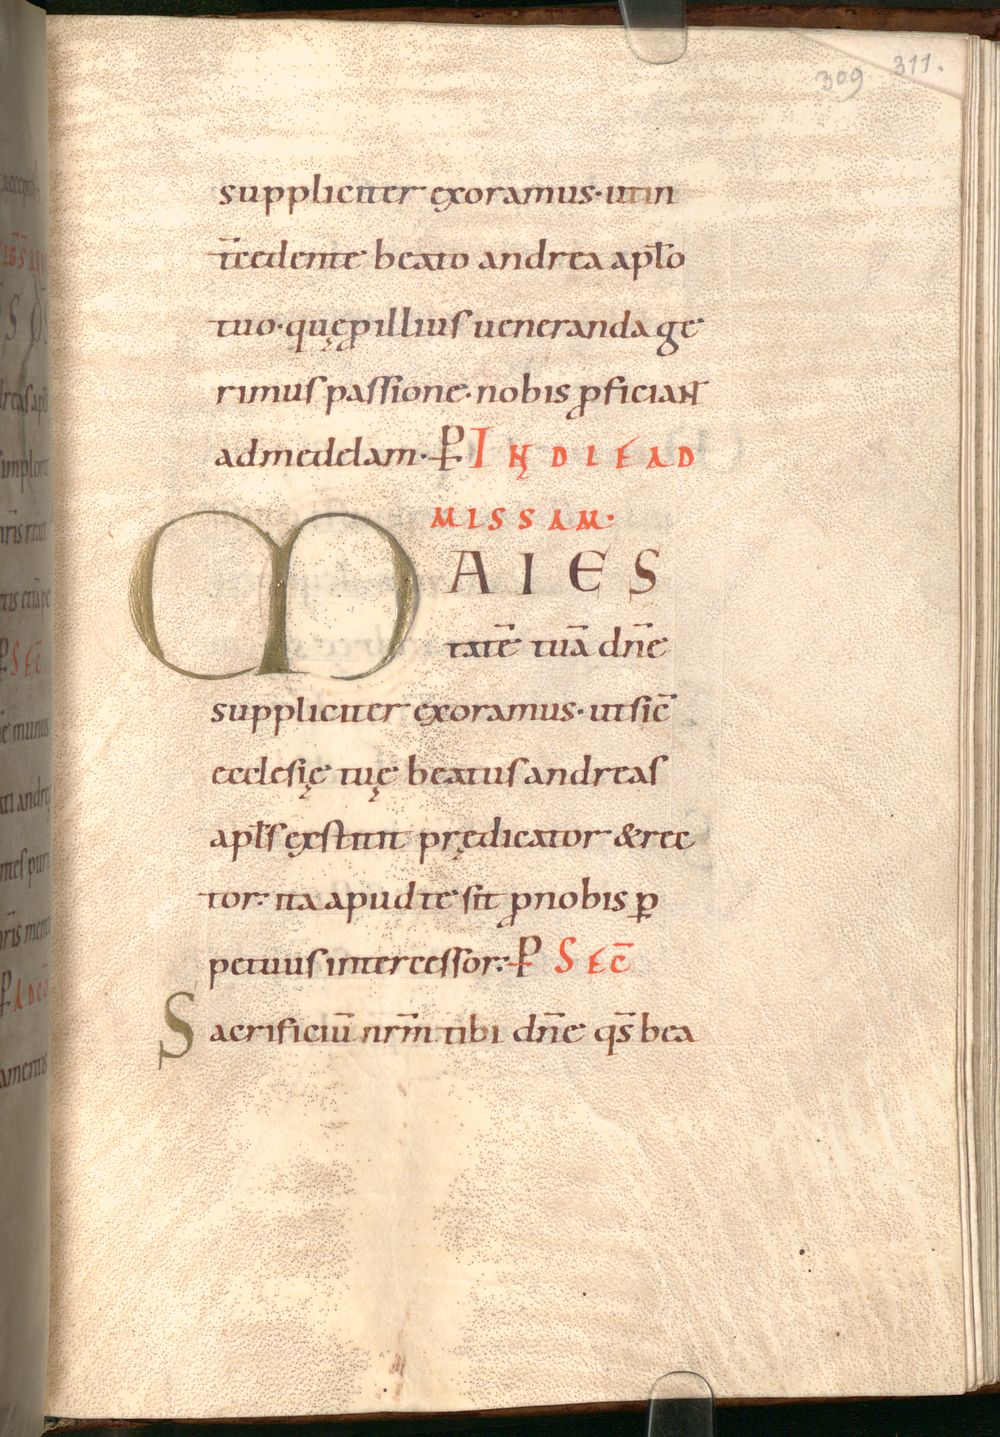 309 311.
suppliciter exoramus· ut in
t̄cedente beato andrea apl̄o
tuo· quę ꝓ illius ueneranda ge
rimus passione· nobis ꝓficiant
ad medelam· P IN DIE AD
MISSAM·
MAIES
tatē tuā dn̄e
suppliciter exoramus· ut sic̄
ecclesię tuę beatus andreas
apl̄s exstitit prędicator & rec
tor: ita apud te sit ꝓ nobis ꝑ
petuus intercessor: P SEC̄
Sacrificiū nr̄m tibi dn̄e qs̄ bea